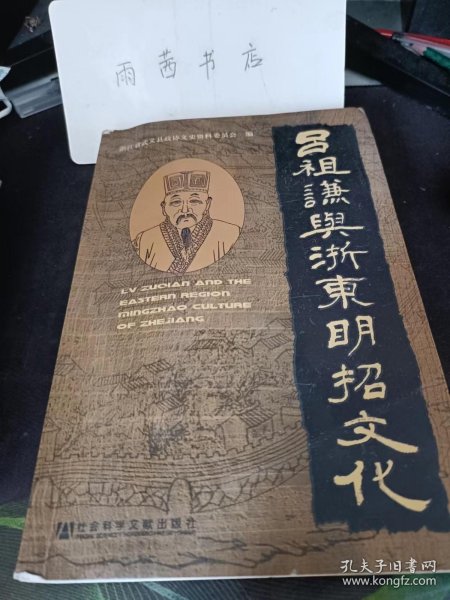 雨茜书店
浙江省武义县政协文史资料委员会 编
吕祖謙與浙東明招文化
LV ZUQIAN AND THE
EASTERN REGION
MINGZHAO CULTURE
OF ZHEJIANG
社会科学文献出版社
孔夫子旧书网
www.kongfz.com